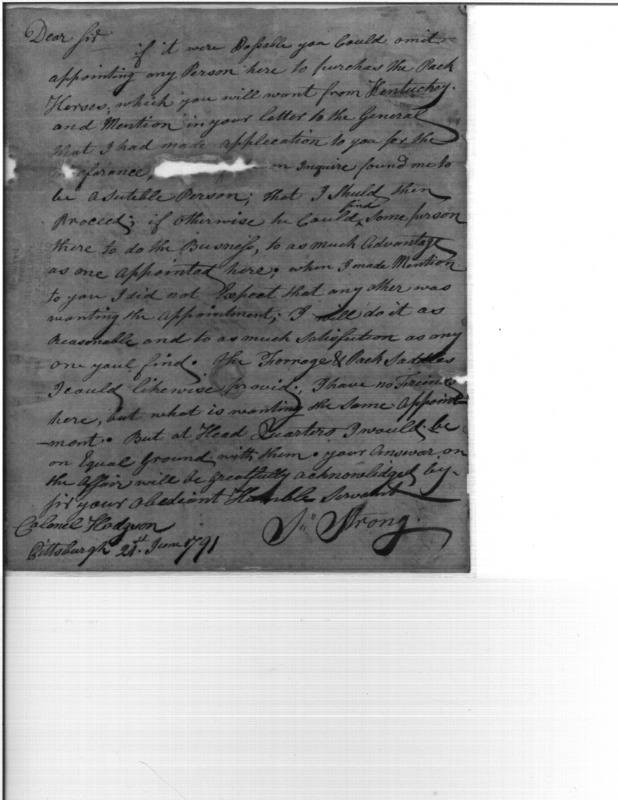 Dear Sir
if it were Possable you Could omit
appointing any Person here to purchas the Pack
Horses, which you will want from Kentuckey.
and Mention in your letter to the General
that I had made application to you for the
on Inquire found me to
be a suteble Person; that I Shuld then
Proceed; if otherwise he Could find some person
there to do the Busness, to as much Advantage
as one appointed here. when I made Mention
to you I did not Expect that any other was
wanting the appointment; I do it as
Reasonable and to as much Satisfection as any
one youl find. the Forrage & Pack Saddles
I could likewise provid. I have no Friends
here, but what is wanting the same Appoint
-ment. But at Head Quarters I would be
on Equal Ground with them. your Answar on
the Affair will be greatfully acknowlidged by.
Sir your obediant Humble Servant
Colonel Hodgson
Strong.
Pittsburgh 21st June 1791